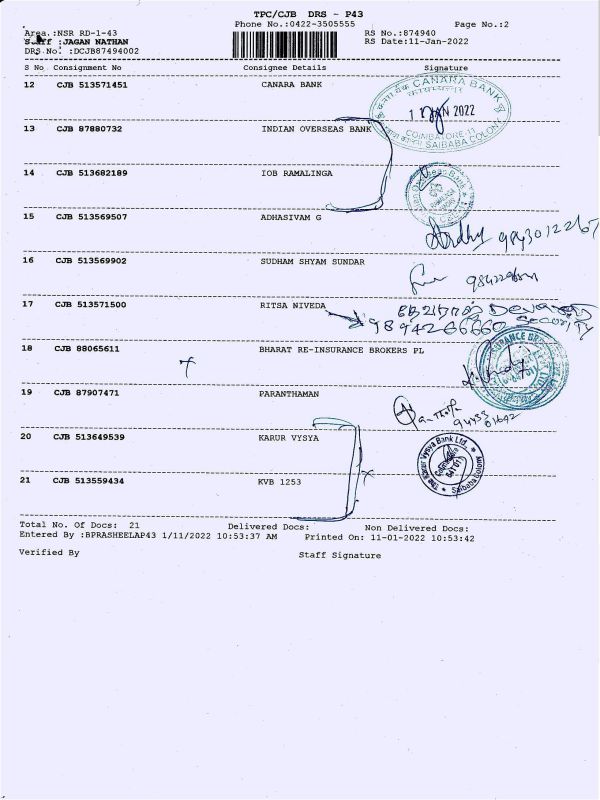 TPC/CJB DRS - P43
Phone No.:0422-3505555 Page No.:2
Area.:NSR RD-1-43 RS No.:874940
Staff :JAGAN NATHAN RS Date:11-Jan-2022
DRS No. :DCJB87494002
S No Consignment No Consignee Details Signature
12 CJB 513571451 CANARA BANK
CANARA BANK
JAN 2022
COIMBATORE-11
SAIBABA COLONY
13 CJB 87880732 INDIAN OVERSEAS BANK
14 CJB 513682189 IOB RAMALINGA
15 CJB 513569507 ADHASIVAM G
9843012267
16 CJB 513569902 SUDHAM SHYAM SUNDAR
17 CJB 513571500 RITSA NIVEDA
தேவராஜ்
9894266660 Security
18 CJB 88065611 BHARAT RE-INSURANCE BROKERS PL
19 CJB 87907471 PARANTHAMAN
20 CJB 513649539 KARUR VYSYA
The Karur Vysya Bank Ltd.
Saibaba Colony
21 CJB 513559434 KVB 1253
Total No. Of Docs: 21 Delivered Docs: Non Delivered Docs:
Entered By :BPRASHEELAP43 1/11/2022 10:53:37 AM Printed On: 11-01-2022 10:53:42
Verified By Staff Signature